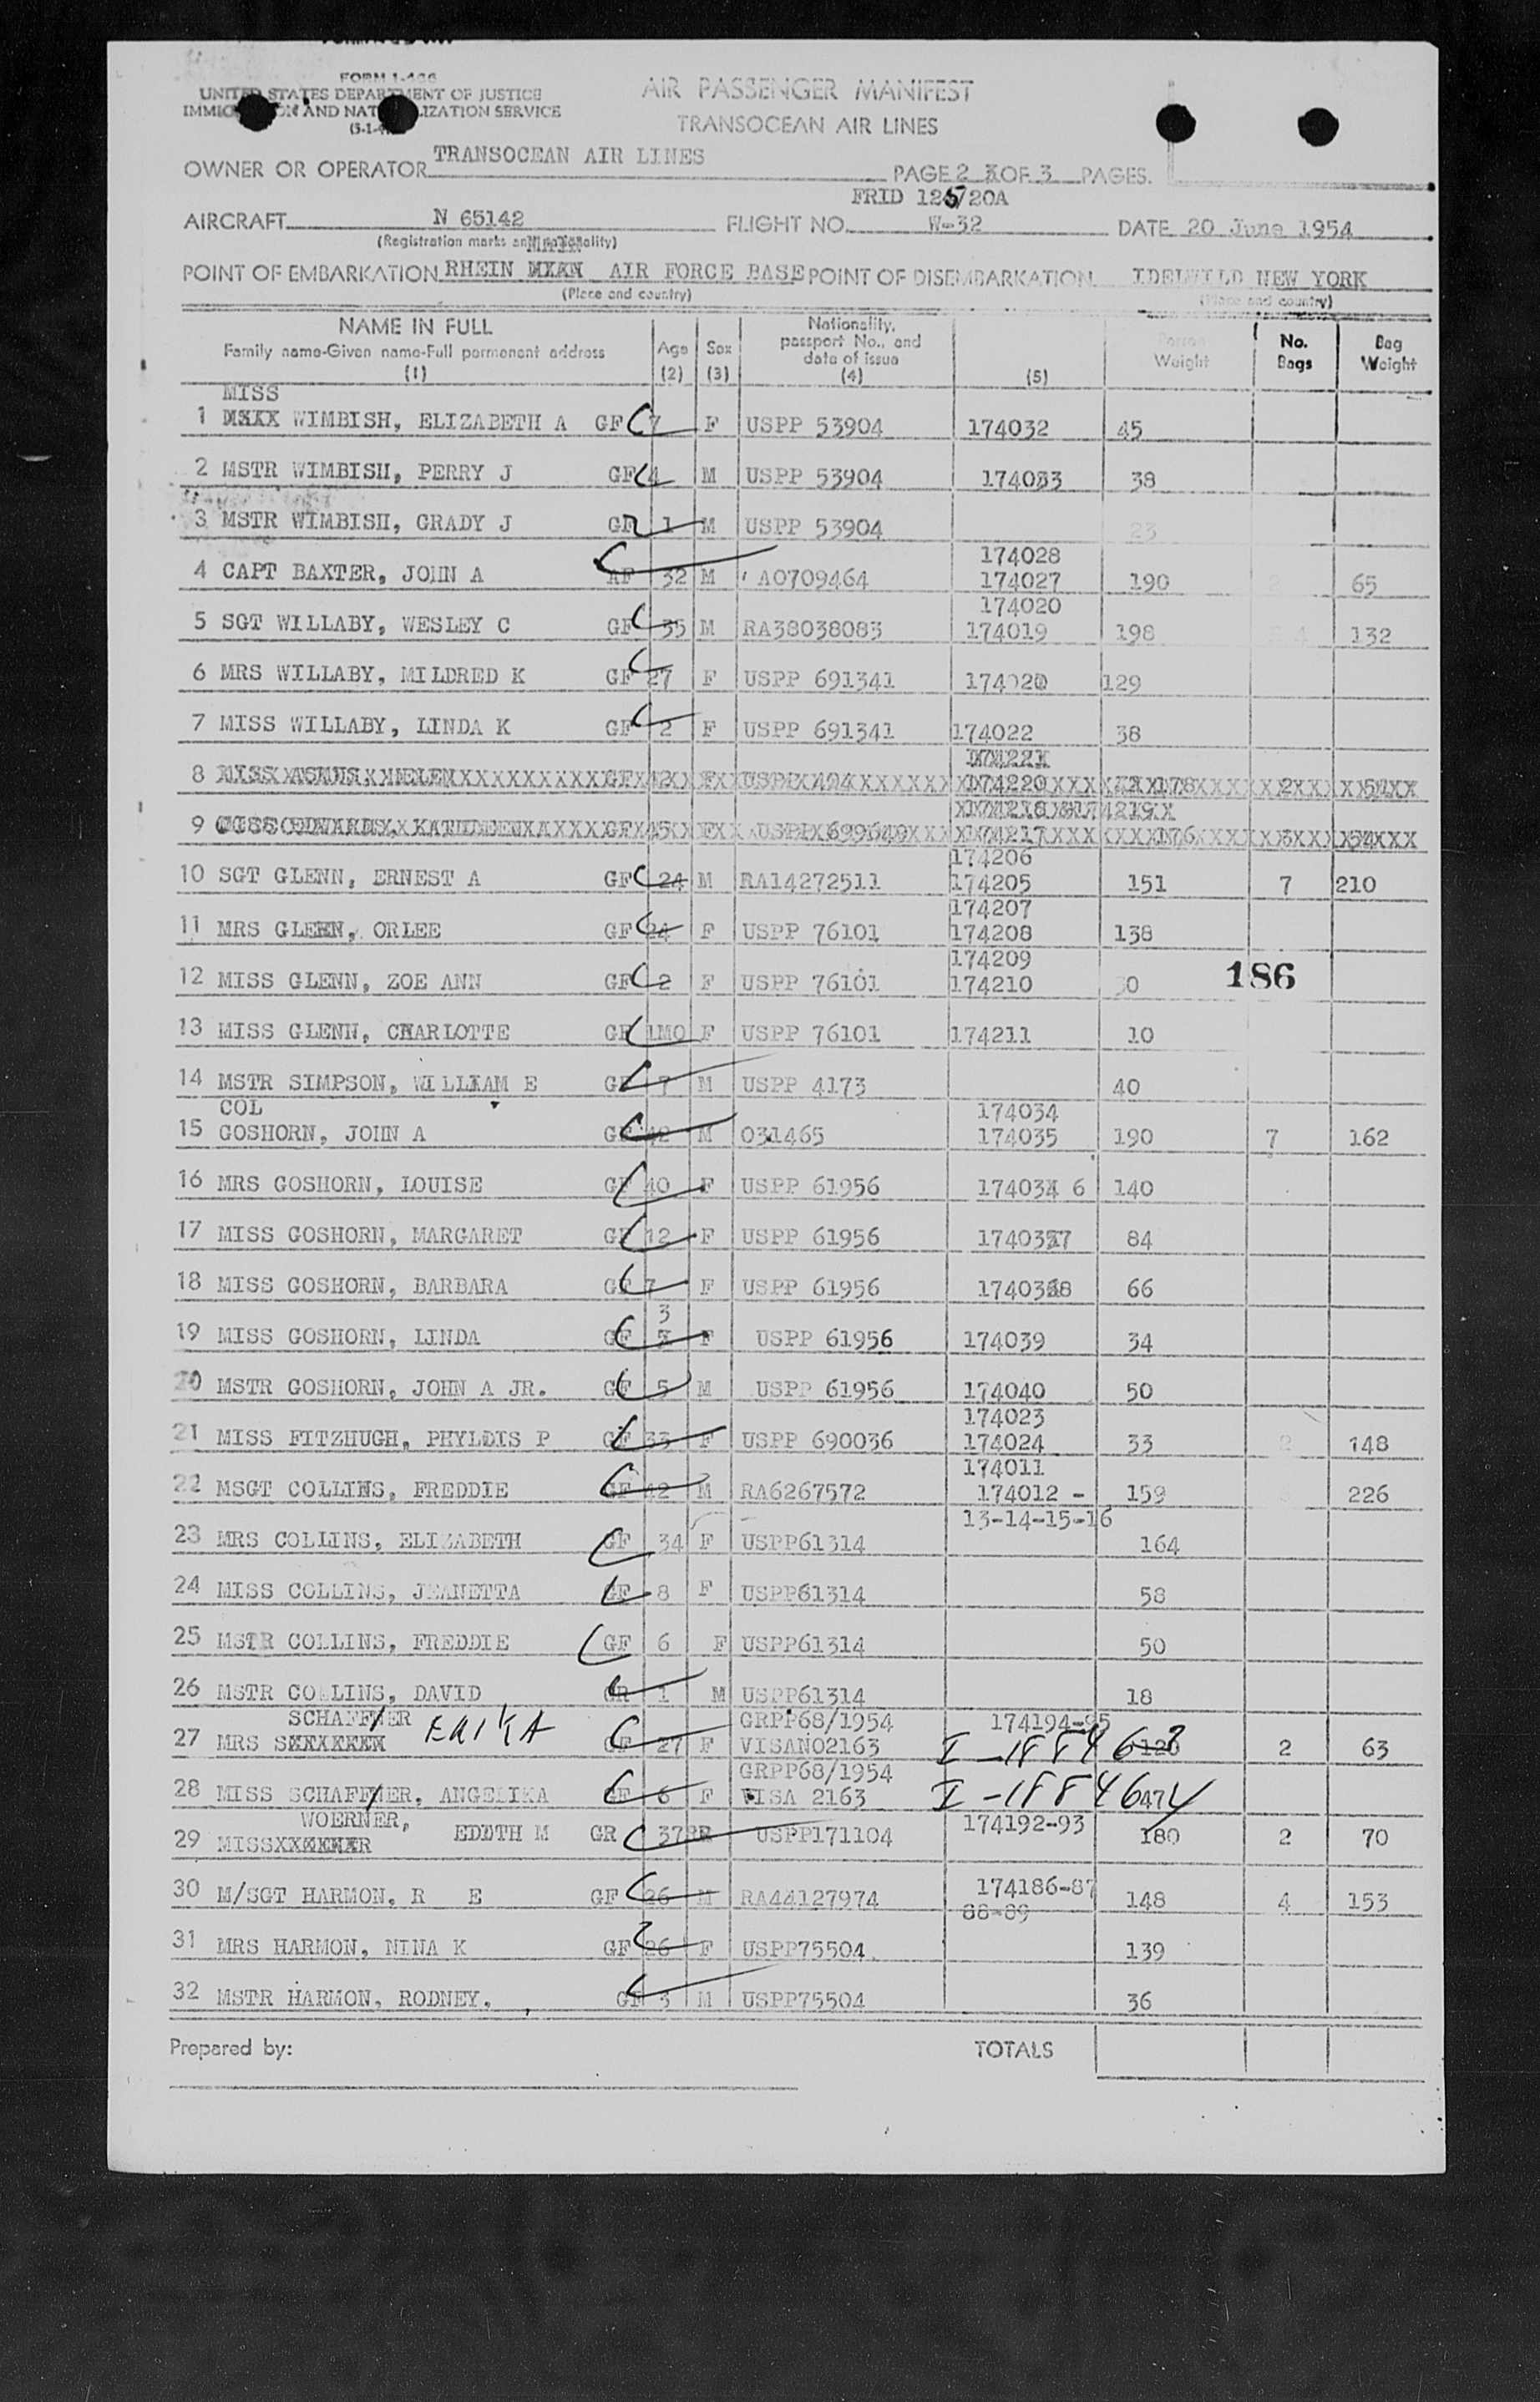 FORM I-466
UNITED STATES DEPARTMENT OF JUSTICE
IMMIGRATION AND NATURALIZATION SERVICE
AIR PASSENGER MANIFEST
TRANSOCEAN AIR LINES
OWNER OR OPERATOR TRANSOCEAN AIR LINES PAGE 2 OF 3 PAGES.
FRID 125/20A
AIRCRAFT N 65142 FLIGHT NO. W-32 DATE 20 June 1954
(Registration marks and nationality)
POINT OF EMBARKATION RHEIN MAIN AIR FORCE BASE POINT OF DISEMBARKATION IDELWILD NEW YORK
(Place and country) (Place and country)
NAME IN FULL Family name-Given name-Full permanent address (1) Age (2) Sex (3) Nationality, passport No., and date of issue (4) (5) Person Weight No. Bags Bag Weight
MISS
1 WIMBISH, ELIZABETH A GF 7 F USPP 53904 174032 45
2 MSTR WIMBISH, PERRY J GF 4 M USPP 53904 174033 38
3 MSTR WIMBISH, GRADY J GF 1 M USPP 53904 23
174028
4 CAPT BAXTER, JOHN A AF 32 M AO709464 174027 190 2 65
174020
5 SGT WILLABY, WESLEY C GF 35 M RA38038083 174019 198 132
6 MRS WILLABY, MILDRED K GF 27 F USPP 691341 129
7 MISS WILLABY, LINDA K GF 2 F USPP 691341 174022 38
8 174220 178 2
9 174217 176 3 54
174206
10 SGT GLENN, ERNEST A GF 24 M RA14272511 174205 151 7 210
174207
11 MRS GLENN, ORLEE GF 24 F USPP 76101 174208 138
174209
12 MISS GLENN, ZOE ANN GF 2 F USPP 76101 174210 30 186
13 MISS GLENN, CHARLOTTE GF 1MO F USPP 76101 174211 10
14 MSTR SIMPSON, WILLIAM E GF 7 M USPP 4173 40
COL 174034
15 GOSHORN, JOHN A GF 42 M 031465 174035 190 7 162
16 MRS GOSHORN, LOUISE GF 40 F USPP 61956 17403 6 140
17 MISS GOSHORN, MARGARET GF 12 F USPP 61956 174037 84
18 MISS GOSHORN, BARBARA GF 7 F USPP 61956 174038 66
3
19 MISS GOSHORN, LINDA GF F USPP 61956 174039 34
20 MSTR GOSHORN, JOHN A JR. GF 5 M USPP 61956 174040 50
174023
21 MISS FITZHUGH, PHYLDIS P GF 33 F USPP 690036 174024 33 2 148
174011
22 MSGT COLLINS, FREDDIE GF 42 M RA6267572 174012 - 159 226
13-14-15-16
23 MRS COLLINS, ELIZABETH GF 34 F USPP61314 164
24 MISS COLLINS, JEANETTA GF 8 F USPP61314 58
25 MSTR COLLINS, FREDDIE GF 6 F USPP61314 50
26 MSTR COLLINS, DAVID GR 1 M USPP61314 18
SCHAFFNER ERIKA GRPP68/1954 174194-95
27 MRS GF 27 F VISANO2163 I-188463 126 2 63
GRPP68/1954
28 MISS SCHAFFNER, ANGELIKA GF 6 F VISA 2163 I-188464 47
WOERNER, 174192-93
29 MISS EDITH M GR 37 USPP171104 180 2 70
174186-87
30 M/SGT HARMON, R E GF 26 M RA44127974 88-89 148 4 153
31 MRS HARMON, NINA K GF 26 F USPP75504 139
32 MSTR HARMON, RODNEY, GF 3 M USPP75504 36
Prepared by: TOTALS